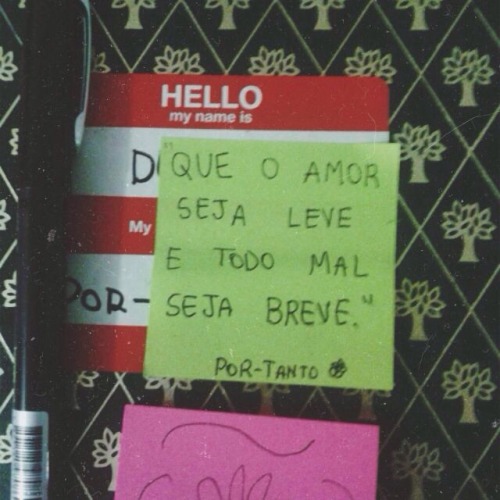 HELLO
my name is
D
"QUE O AMOR
SEJA LEVE
My
E TODO MAL
POR-
SEJA BREVE."
POR-TANTO